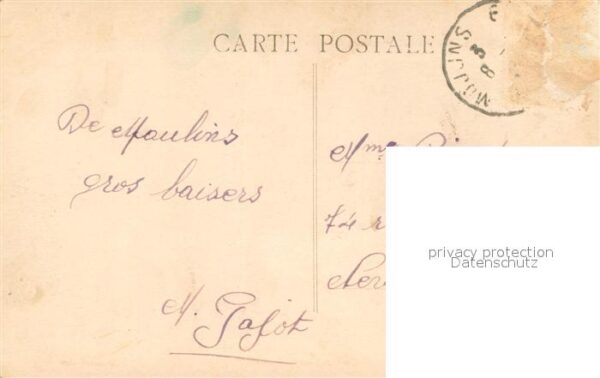 CARTE POSTALE
MOULINS
De Moulins
gros baisers
Mme
74 r
privacy protection
Datenschutz